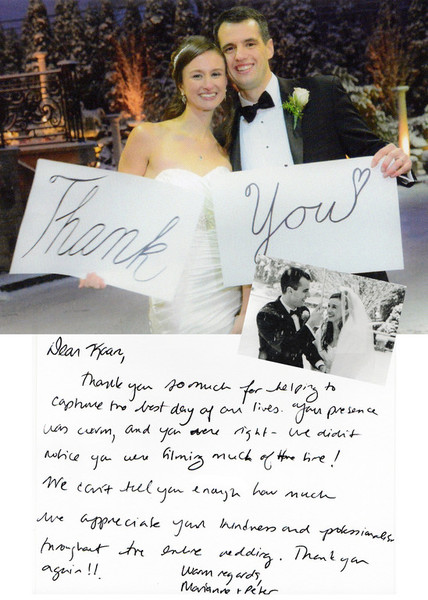 Thank
You
Dear Kaan,
Thank you so much for helping to
capture the best day of our lives. Your presence
was warm, and you were right - we didn't
notice you were filming much of the time!
We can't tell you enough how much
we appreciate your kindness and professionalism
throughout the entire wedding. Thank you
again!!.
Warm regards,
Marianne + Peter